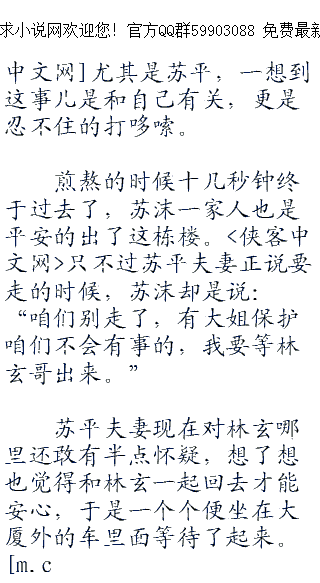 求小说网欢迎您! 官方QQ群59903088 免费最新
中文网]尤其是苏平，一想到
这事儿是和自己有关，更是
忍不住的打哆嗦。
煎熬的时候十几秒钟终
于过去了，苏沫一家人也是
平安的出了这栋楼。<侠客中
文网>只不过苏平夫妻正说要
走的时候，苏沫却是说:
“咱们别走了，有大姐保护
咱们不会有事的，我要等林
玄哥出来。”
苏平夫妻现在对林玄哪
里还敢有半点怀疑，想了想
也觉得和林玄一起回去才能
安心，于是一个个便坐在大
厦外的车里面等待了起来。
[m.c